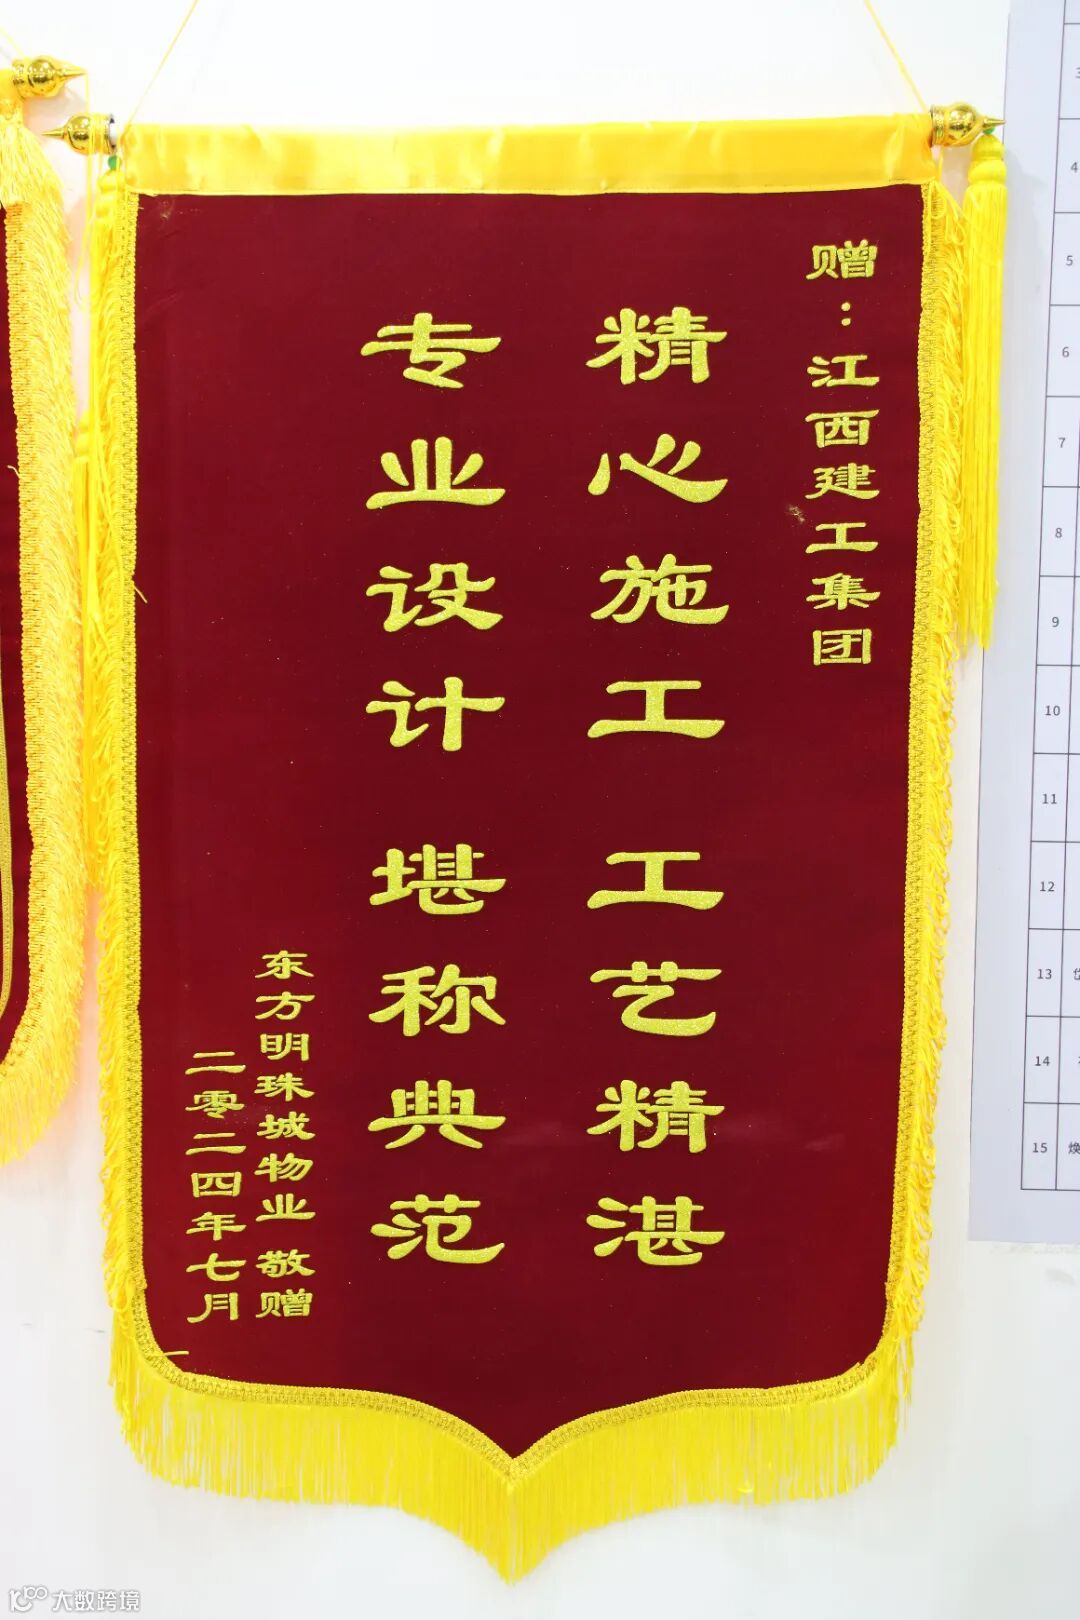 赠：江西建工集团
精心施工 工艺精湛
专业设计 堪称典范
东方明珠城物业 敬赠
二零二四年七月
3
4
5
6
7
8
9
10
11
12
13
14
15 焕
大数跨境